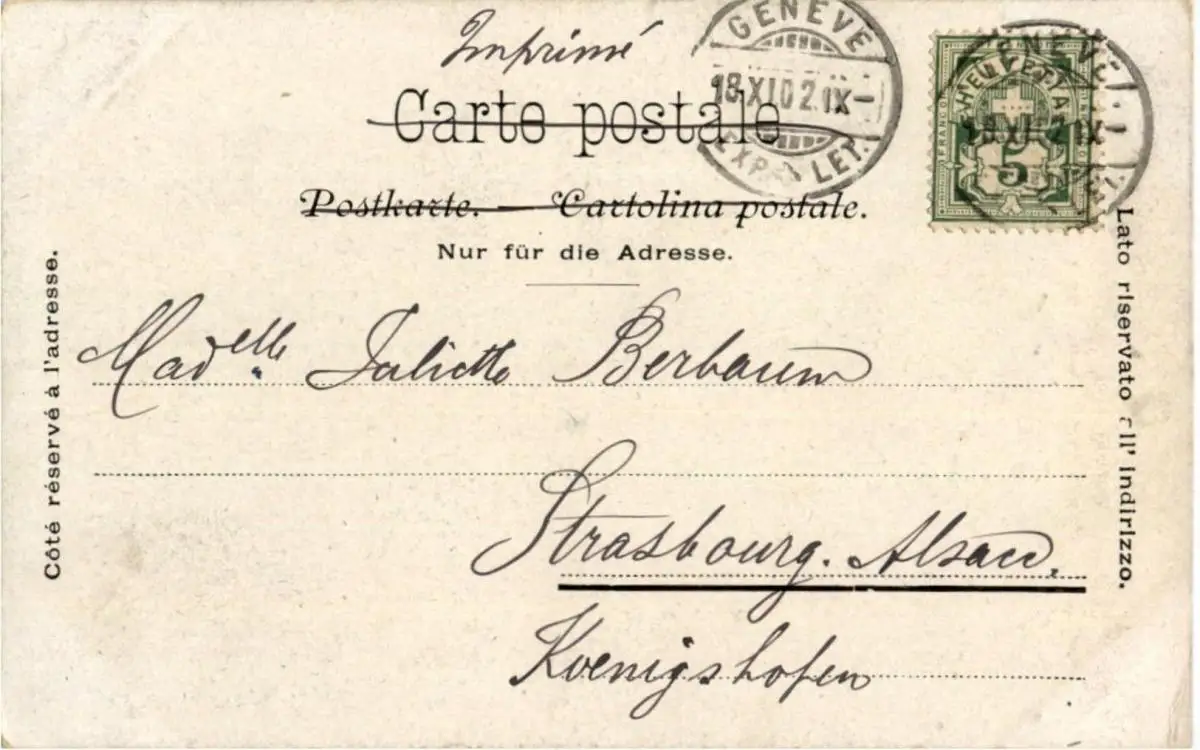 Imprimé
GENÈVE
18.XI.02.IX–
EXP. LET.
HELVETIA
FRANCO
5
Carte postale
Postkarte. — Cartolina postale.
Nur für die Adresse.
Côté réservé à l'adresse.
Lato riservato all' indirizzo.
Madelle Juliette Berbaum
Strasbourg. Alsace.
Koenigshofen